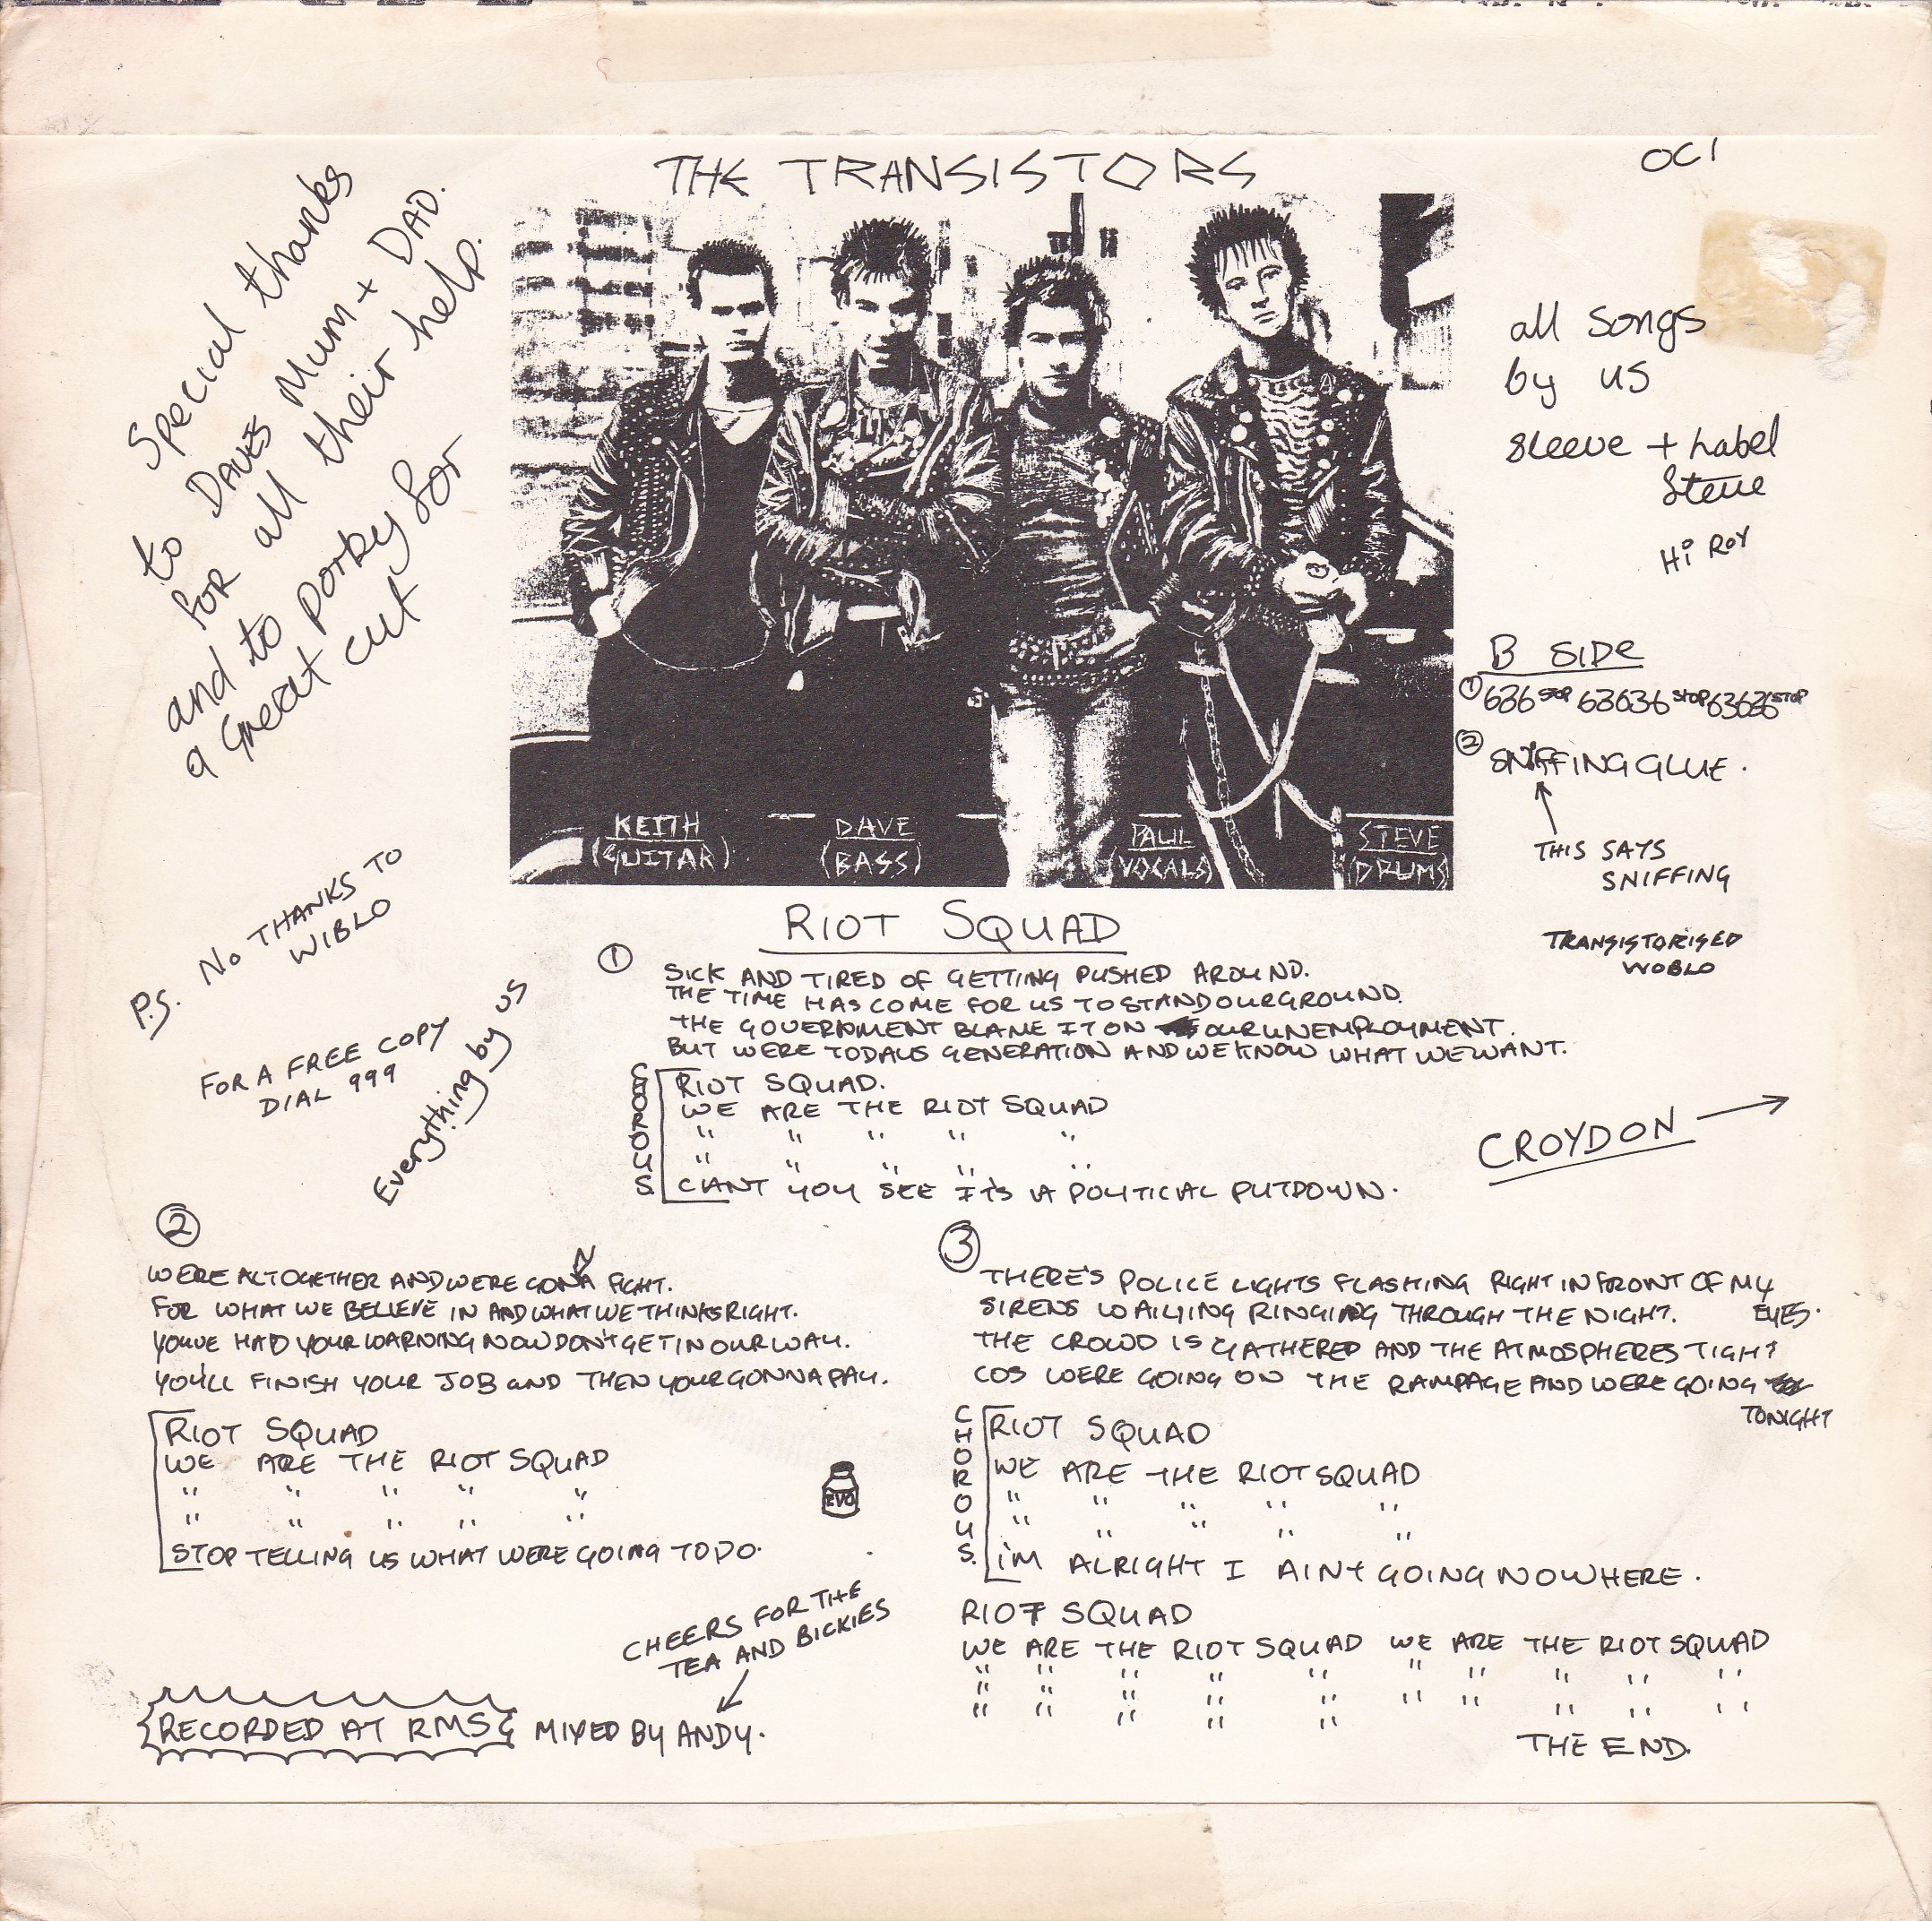 THE TRANSISTORS
OC1
Special thanks
to DAVES Mum + DAD.
for all their help.
and to porky for
a Great cut
all songs
by us
sleeve + Label
Steve
Hi ROY
B SIDE
① 636 STOP 63636 STOP 63636 STOP
② SNIFFING GLUE.
THIS SAYS
SNIFFING
TRANSISTORISED
WOBLO
KEITH
(GUITAR)
DAVE
(BASS)
PAUL
(VOCALS)
STEVE
(DRUMS)
P.S. NO THANKS TO
WIBLO
FOR A FREE COPY
DIAL 999
Everything by us
CROYDON
RIOT SQUAD
①
SICK AND TIRED OF GETTING PUSHED AROUND.
THE TIME HAS COME FOR US TO STAND OUR GROUND.
THE GOVERNMENT BLAME IT ON OUR UNEMPLOYMENT.
BUT WERE TODAYS GENERATION AND WE KNOW WHAT WE WANT.
CHOROUS.
RIOT SQUAD.
WE ARE THE RIOT SQUAD
" " " " "
" " " " "
CANT YOU SEE ITS A POLITICAL PUTDOWN.
②
WERE ALTOGETHER AND WERE GONNA FIGHT.
FOR WHAT WE BELIEVE IN AND WHAT WE THINKS RIGHT.
YOUVE HAD YOUR WARNING NOW DON'T GET IN OUR WAY.
YOU'LL FINISH YOUR JOB and THEN YOUR GONNA PAY.
RIOT SQUAD
WE ARE THE RIOT SQUAD
" " " " "
" " " " "
STOP TELLING US WHAT WERE GOING TO DO.
EVO
③
THERE'S POLICE LIGHTS FLASHING RIGHT IN FRONT OF MY
EYES.
SIRENS WAILYING RINGING THROUGH THE NIGHT.
THE CROWD IS GATHERED AND THE ATMOSPHERES TIGHT
COS WERE GOING ON THE RAMPAGE AND WERE GOING
TONIGHT
CHOROUS.
RIOT SQUAD
WE ARE THE RIOT SQUAD
" " " " "
" " " " "
i'M ALRIGHT I AINT GOING NOWHERE.
RIOT SQUAD
WE ARE THE RIOT SQUAD WE ARE THE RIOT SQUAD
" " " " " " " " " "
" " " " " " " " " "
THE END.
CHEERS FOR THE
TEA AND BICKIES
RECORDED AT RMS & MIXED BY ANDY.